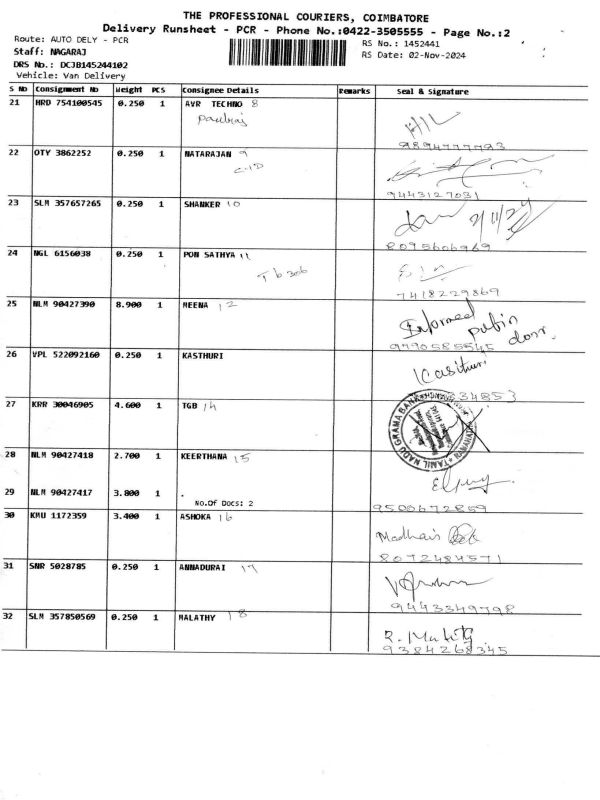 THE PROFESSIONAL COURIERS, COIMBATORE
Delivery Runsheet - PCR - Phone No.:0422-3505555 - Page No.:2
Route: AUTO DELY - PCR
RS No.: 1452441
Staff: NAGARAJ
RS Date: 02-Nov-2024
DRS No.: DCJB145244102
Vehicle: Van Delivery
S No Consignment No Weight PCS Consignee Details Remarks Seal & Signature
21 HRD 754100545 0.250 1 AVR TECHNO 8
9894777793
22 OTY 3862252 0.250 1 NATARAJAN 9
9443127031
23 SLM 357657265 0.250 1 SHANKER 10
2/11/24
8095606969
24 NGL 6156038 0.250 1 PON SATHYA 11
7418229869
25 NLM 90427390 8.900 1 MEENA 12
Informed
door.
9790585545
26 VPL 522092160 0.250 1 KASTHURI
Kasthuri
27 KRR 30046905 4.600 1 TGB 14
TAMIL NADU GRAMA BANK
28 NLM 90427418 2.700 1 KEERTHANA 15
29 NLM 90427417 3.800 1 .
No.Of Docs: 2
9500672869
30 KMU 1172359 3.400 1 ASHOKA 16
8072484571
31 SNR 5028785 0.250 1 ANNADURAI 17
9443349798
32 SLM 357850569 0.250 1 MALATHY 18
9384268345